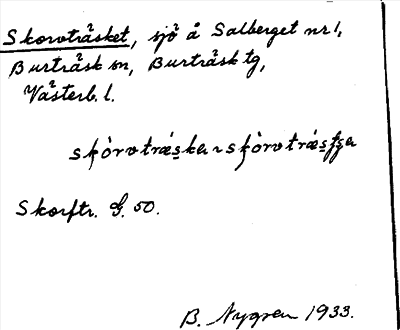 Skorvträsket, sjö å Salberget nr 1,
Burträsk sn, Burträsk tg,
Västerb. l.
skòrvtrǽska ~ skòrvtrǽsʃʃa
Skorftr. G. 50.
B. Nygren 1933.